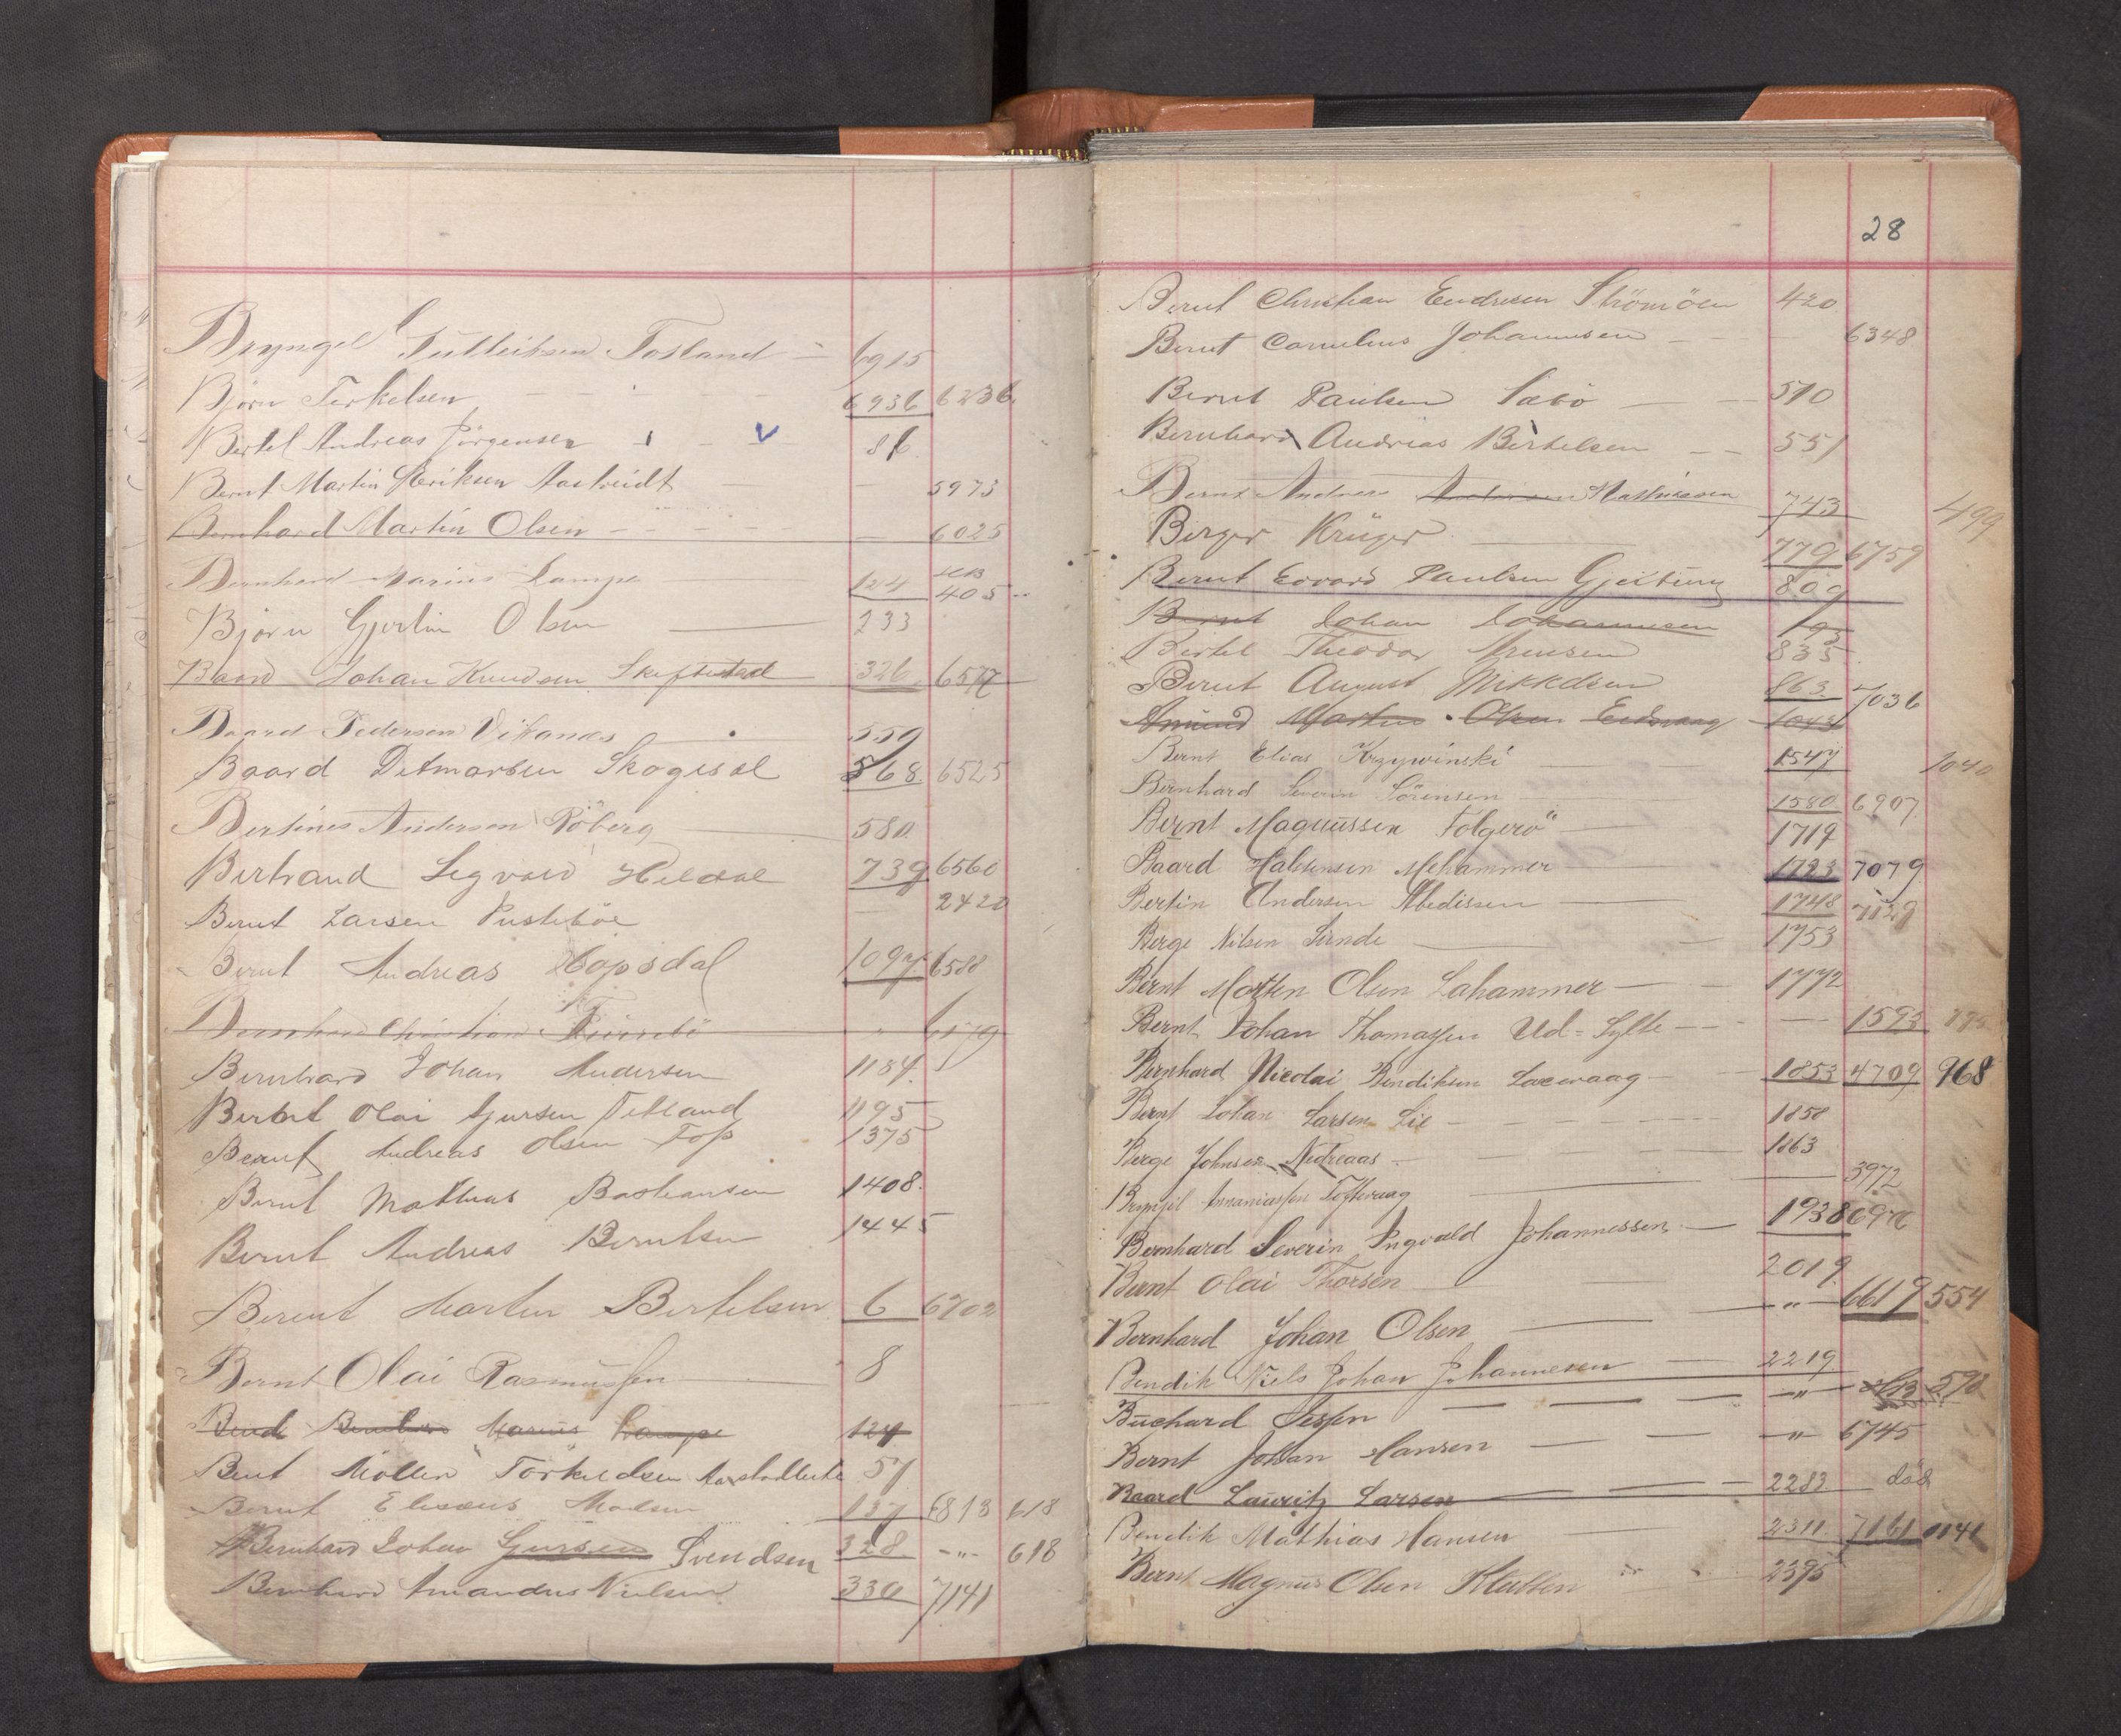 Bryngel Tulleiksen Tosland 6915
Bjørn Terkelsen 6936 6236
Bertel Andreas Jörgensen 86
Bernt Martin Heriksen 5973
Bernhard Martin Olsen 6025
Bernhard Marius Lampe 124 405
Bjørn Gjertin Olsen 233
Baard Johan Knudsen Skiftestad 326 6577
Baard Pedersen Vikanes 559
Baard Ditmarsen Skogesal 568 6525
Bertines Andersen Röberg 580
Bertrand Sigvald Hildal 739 6560
Bernt Larsen 2420
Bernt Andreas Hopsdal 1097 6588
Bernhard Christian 6579
Bernhard Johan Andersen 1184
Berent Olai Gjursen Tetland 1195
Bernt Andreas Olsen Fos 1375
Bernt Mathias Bastiansen 1408
Bernt Andreas Berntsen 1445
Berent Martin Bertelsen 6 6702
Bernt Olai Rasmussen 8
Marius Lampe 124
Bent Möller Törkildsen 57
Bernt Elisæus Madsen 137 6813 618
Bernhard Johan Gjursen Svendsen 328 -"- 618
Bernhard Amandus Nielsen 330 7141
28
Bernt Christian Endresen Strömöen 420
Bernt Cornelius Johannesen 6348
Bernt Paulsen Säbö 510
Bernhard Andreas Bertelsen 551
Bernt Andreas Andersen Mathiasen 743 499
Berger Krüger 779 6759
Bernt Edvard Paulsen Gjeitung 809
Bernt Johan Johannesen
Bertel Theodor Arensen 835
Bernt August Mikkelsen 863 7036
Amund Martin Olsen Eidsvaag 1043
Bernt Elias Krzywinski 1547 1040
Bernhard Severin Sörensen 1580 6907
Bernt Magnussen Folgerö 1719
Baard Halstensen Mehammer 1723 7079
Bertin Andersen Abedissen 1748 7129
Berge Nilsen Sunde 1753
Bernt Morten Olsen Lahammer 1772
Bernt Johan Thomassen Ud-Sylte 1593
Bernhard Nicolai Bendiksen Laxevaag 1853 4709 968
Bernt Johan Larsen Lie 1858
Berge Johnsen Nedreaas 1863
Brynjel Annaniassen Toftevaag 3972
Bernhard Severin Ingvald Johannessen 1938 6976
Bernt Olai Thorsen 2019
Bernhard Johan Olsen -"- 6619 554
Bendik Niels Johan Johannesen 2219
Buchard Jessen -"- 598
Bernt Johan Hansen -"- 6745
Baard Lauritz Larsen 2283 död
Bendik Mathias Hansen 2311 7161 1141
Bernt Magnus Olsen Klubben 2395